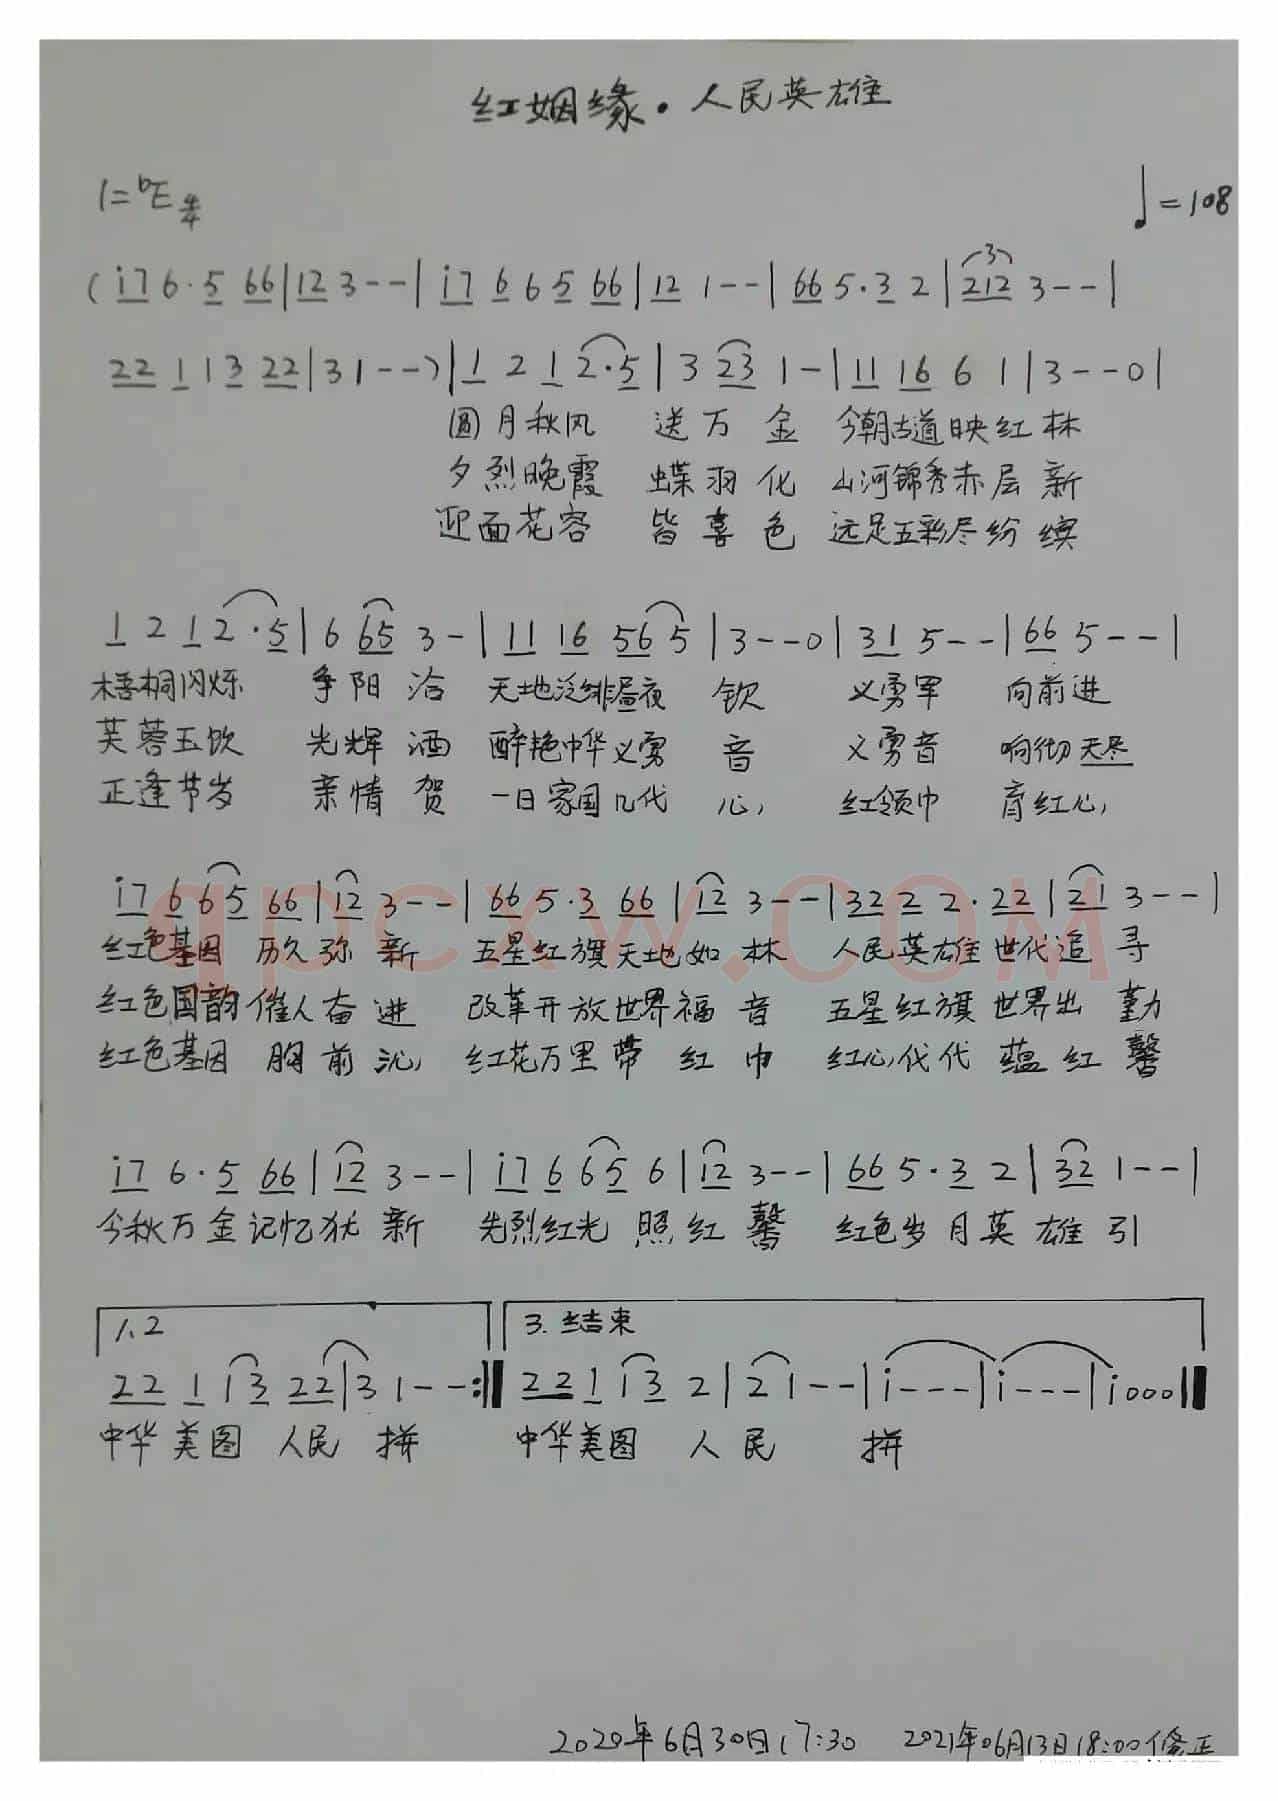 红姻缘·人民英雄
1=♭E 4/4
♩=108
(i7 6·5 66|12 3--|i7 6 6 5 66|12 1--|66 5·3 2|212 3--|
22 1 1 3 22|3 1--)|1 2 1 2·5|3 23 1-|11 16 6 1|3--0|
圆月秋风 送万金 今朝古道映红林
夕烈晚霞 蝶羽化 山河锦秀赤层新
迎面花容 皆喜色 远足五彩尽纷缤
1 2 1 2·5|6 65 3-|11 16 56 5|3--0|31 5--|66 5--|
梧桐闪烁 争阳洽 天地泛绯昼夜 钦 义勇军 向前进
芙蓉玉饮 光辉洒 醉艳中华义勇 音 义勇音 响彻天尽
正逢节岁 亲情贺 一日家国几代 心, 红领巾 育红心,
i7 6 6 5 66|12 3--|66 5·3 66|12 3--|32 2 2·22|21 3--|
红色基因 历久弥新 五星红旗天地如林 人民英雄世代追寻
红色国韵催人奋进 改革开放世界福音 五星红旗世界出勤
红色基因 胸前沁, 红花万里带红巾 红心,代代蕴红馨
i7 6·5 66|12 3--|i7 6 6 5 6|12 3--|66 5·3 2|32 1--|
今秋万金记忆犹新 先烈红光照红馨 红色岁月英雄引
1、2 3.结束
22 1 1 3 22|3 1--:‖ 22 1 1 3 2|2 1--|i---|i---|i000‖
中华美图 人民 拼 中华美图 人民 拼
2020年6月30日17:30 2021年06月13日18:00修正
qpcxw.COM